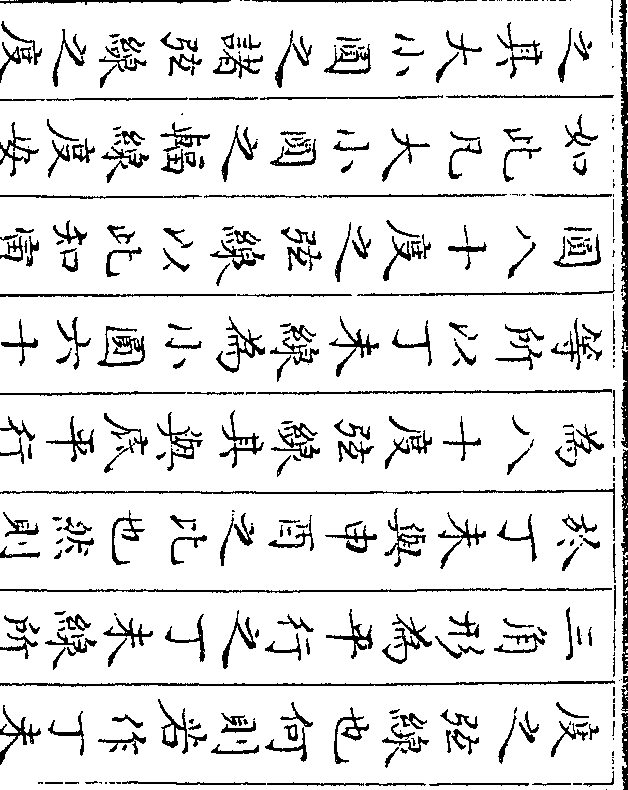 度之弦線也何則若作丁未
三角形為平行之丁未線所
於丁未與申酉之比也然則
為八十度弦線其與底平行
等所以丁未線為小圓六十
圓八十度之弦線以此知
如此凡大小圓之輻線度
之其大小圓之諸弦線之度